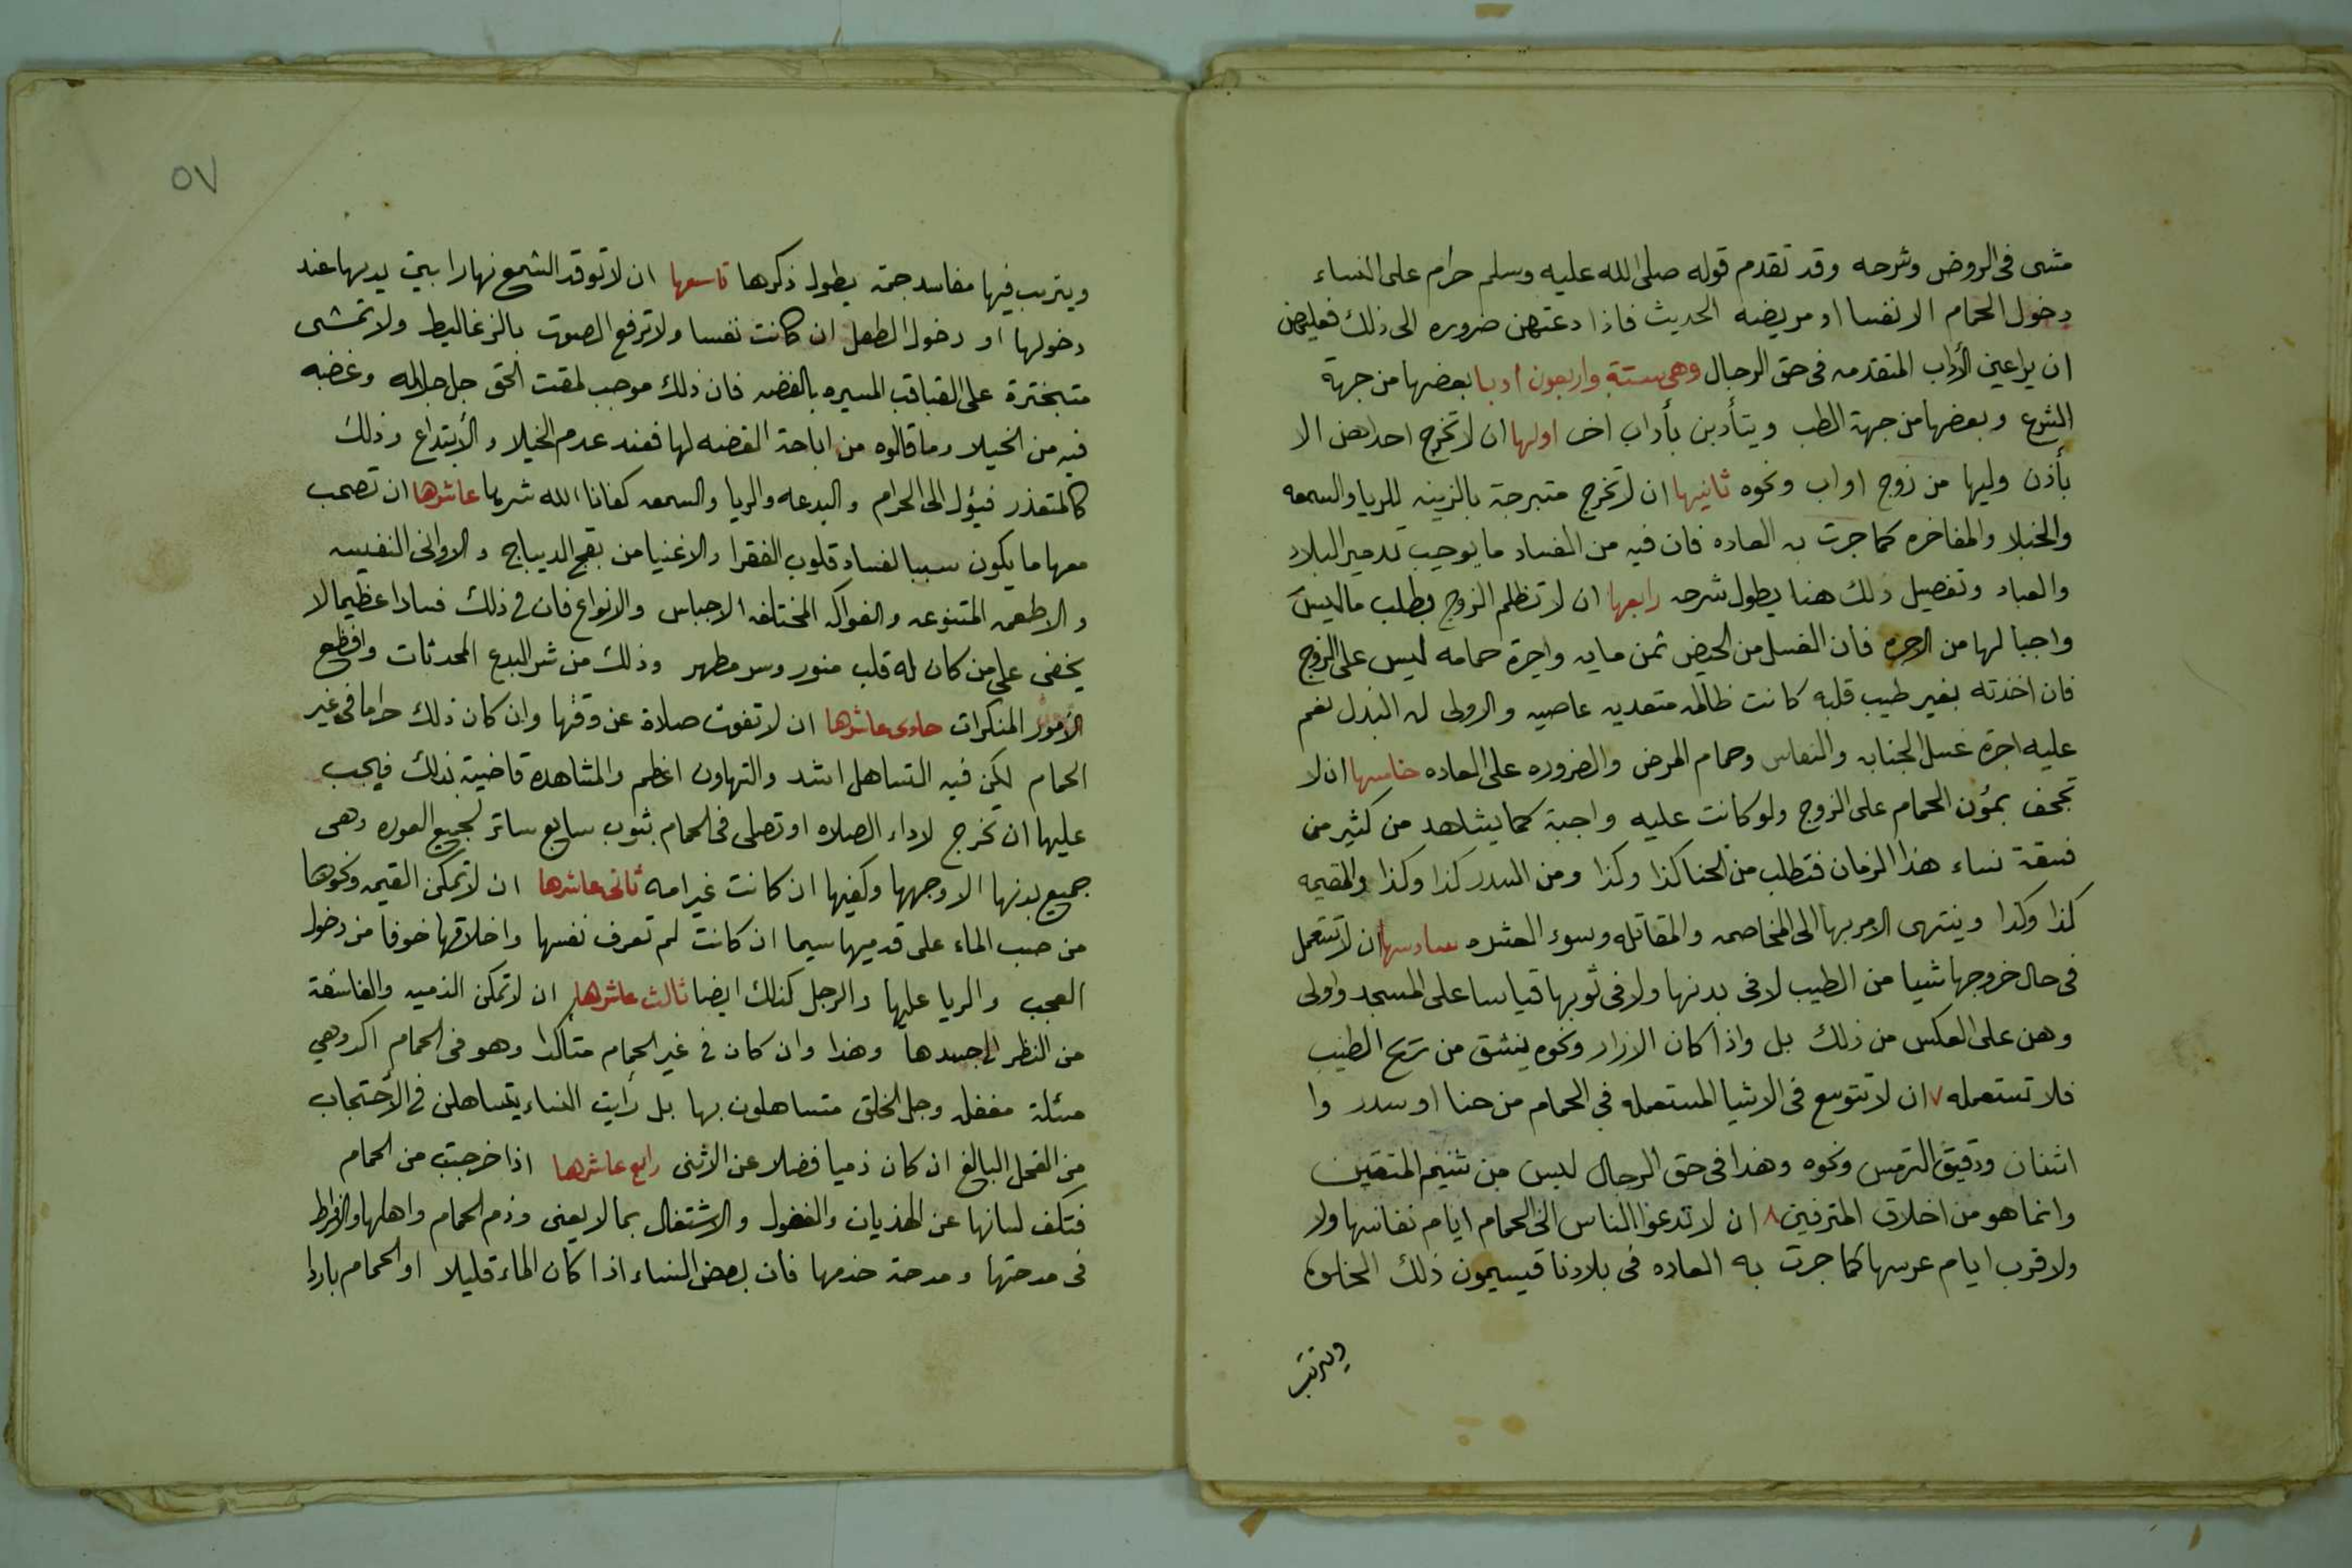 مشى فى الروض وشرحه وقد تقدم قوله صلى الله عليه وسلم حرام على النساء
دخول الحمام الا نفسا او مريضه الحديث فاذا دعتهن ضروره الى ذلك فعليهن
ان يراعين الأداب المتقدمه فى حق الرجال وهى ستة واربعون ادبا بعضها من جهة
الشرع وبعضها من جهة الطب ويتأدبن بأداب اخر اولها ان لا تخرج احداهن الا
بأذن وليها من زوج او اب ونحوه ثانيها ان لا تخرج متبرجة بالزينه للريا والسمعه
والخيلا والمفاخره كما جرت به العاده فان فيه من الفساد ما يوجب تدمير البلاد
والعباد وتفصيل ذلك هنا يطول شرحه رابعها ان لا تظلم الزوج بطلب ما ليس
واجبا لها من الاجره فان الغسل من الحيض ثمن مايه واجرة حمامه ليس على الزوج
فان اخذته بغير طيب قلبه كانت ظالمه متعديه عاصيه والاولى له البذل نعم
عليه اجرة غسل الجنابه والنفاس وحمام المرض والضروره على العاده خامسها ان لا
تجحف بمؤن الحمام على الزوج ولو كانت عليه واجبة كما يشاهد من كثير من
فسقة نساء هذا الزمان فتطلب من الحنا كذا وكذا ومن السدر كذا وكذا والقيمه
كذا وكذا وينتهى الامر بها الى المخاصمه والمقاتله وسوء العشره سادسها ان لا تستعمل
فى حال خروجها شيا من الطيب لا فى بدنها ولا فى ثوبها قياسا على المسجد واولى
وهن على العكس من ذلك بل واذا كان الازار ونحوه ينشق من ريح الطيب
فلا تستعمله ٧ ان لا تتوسع فى الاشيا المستعمله فى الحمام من حنا او سدر وا
اشنان ودقيق الترمس ونحوه وهذا فى حق الرجال ليس من شيم المتقين
وانما هو من اخلاق المترفين ٨ ان لا تدعوا الناس الى الحمام ايام نفاسها ولا
ولا قرب ايام عرسها كما جرت به العاده فى بلادنا قيسيمون ذلك
ويترتب
٥٧
ويترتب فيها مفاسد جمة يطول ذكرها تاسعها ان لا توقد الشمع نهارا بين يديها عند
دخولها او دخول الطفل ان كانت نفسا ولا ترفع الصوت بالزغاليط ولا تمشى
متبخترة على القباقب المسيره بالفضه فان ذلك موجب لمقت الحق جل جلاله وغضبه
فيه من الخيلا وما قالوه من اباحة الفضه لها فعند عدم الخيلا والأبتداع وذلك
كالمتعذر فيؤل الى الحرام والبدعه والريا والسمعه كفانا الله شرها عاشرها ان تصحب
معها ما يكون سببا لفساد قلوب الفقرا والاغنيا من بقج الديباج والاوانى النفيسه
والاطعمه المتنوعه والفواكه المختلفه الاجناس والانواع فان فى ذلك فسادا عظيما لا
يخفى على من كان له قلب منور وسر مطهر وذلك من شر البدع المحدثات وافظع
الأمور المنكرات حادى عاشرها ان لا تفوت صلاة عن وقتها وان كان ذلك حراما فى غير
الحمام لكن فيه التساهل اشد والتهاون اعظم والمشاهده قاضية بذلك فيجب
عليها ان تخرج لاداء الصلاه او تصلى فى الحمام بثوب سابع ساتر لجميع العوره وهى
جميع بدنها الا وجهها وكفيها ان كانت غير امه ثانى عاشرها ان لا تمكن القيمه ونحوها
من صب الماء على قدميها سيما ان كانت لم تعرف نفسها واخلاقها خوفا من دخول
العجب والريا عليها والرجل كذلك ايضا ثالث عاشرها ان لا تمكن الذميه والفاسقة
من النظر الى جسدها وهذا وان كان فى غير الحمام متأكدا وهو فى الحمام اكد وهي
مسئلة مغفله وجل الخلق متساهلون بها بل رأيت النساء يتساهلن فى الأحتجاب
من الفحل البالغ ان كان ذميا فضلا عن الانثى رابع عاشرها اذا خرجت من الحمام
فتكف لسانها عن الهذيان والفضول والاشتغال بما لا يعنى وذم الحمام واهلها والافراط
فى مدحتها ومدحة خدمها فان بعض النساء اذا كان الماء قليلا او الحمام باردا